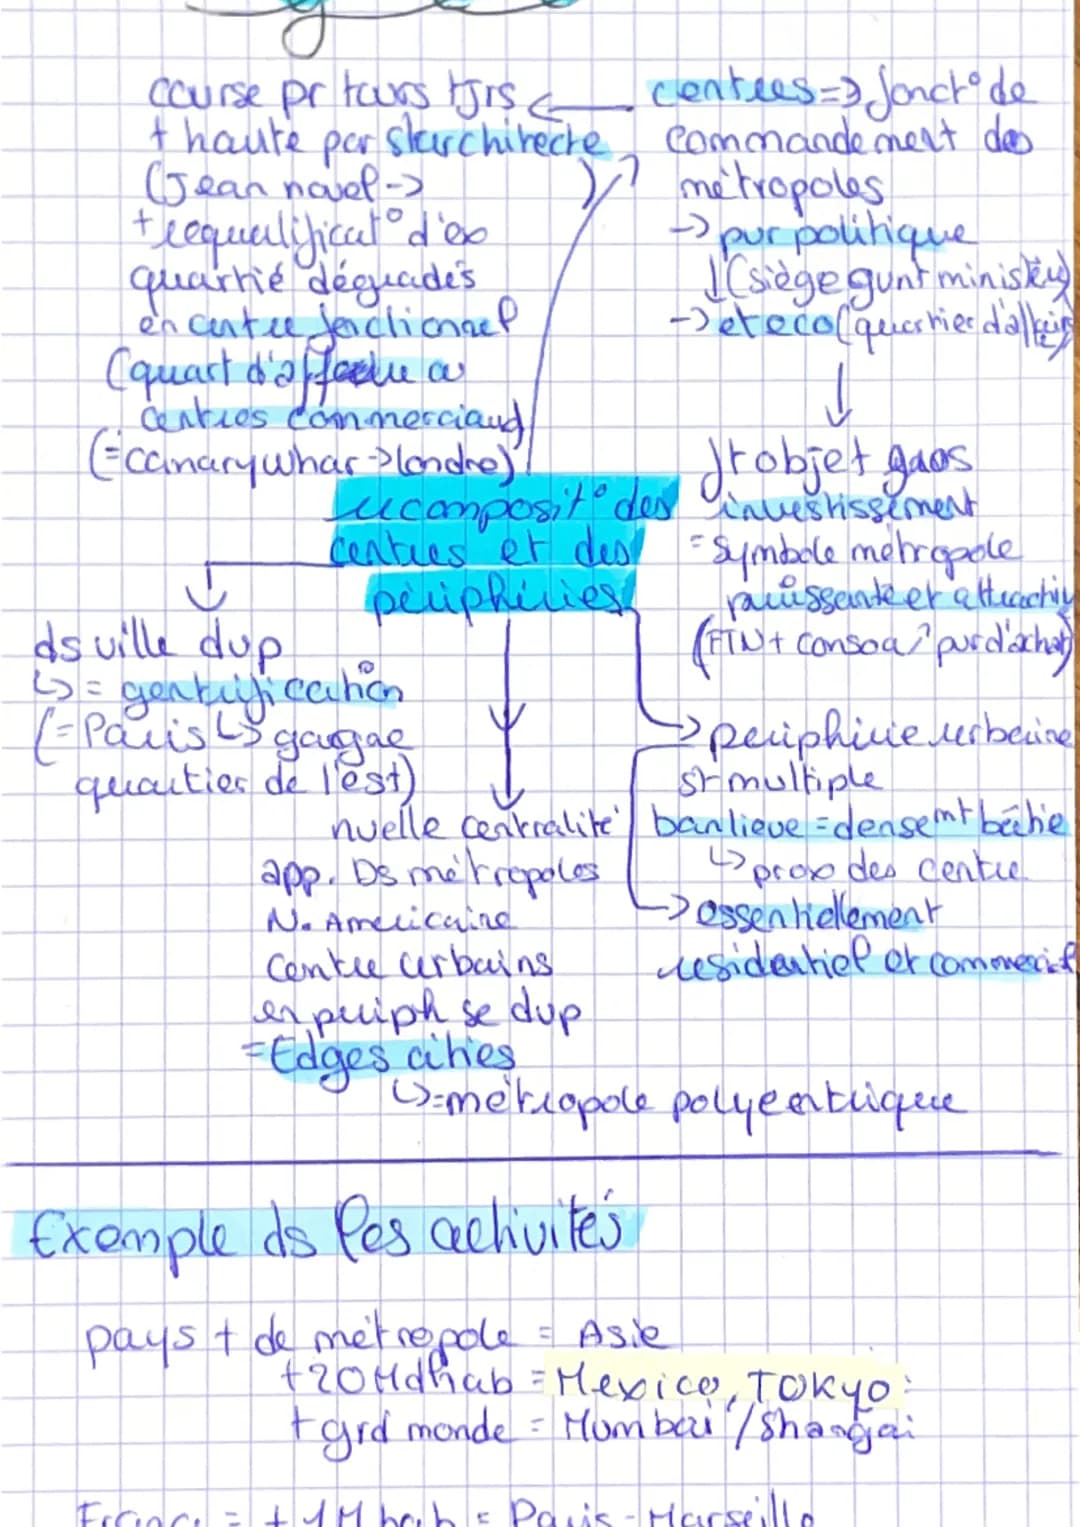 course pr tours tjrs
+ haute par starchitecte
(Jean novel ->
+ requalificat° d'ex
quartié dégradés
en centre fonctionnel
(quart d'affaire ou
centres commerciaux)
(=canarywhar->londre)
centres=> fonct° de
commandement des
métropoles
-> pvr politique
(siège gvnt ministère)
-> et eco (quartier d'affair
st objet gros
investissement
= symbole métropole
puissante et attractiv
(FTN + consoa pvr d'achat)
recomposit° des
centres et des
périphéries
ds ville dvp
↳ = gentrification
(= Paris ↳ gaugae
quartier de l'est)
nvelle centralité
app. Ds métropoles
N. Américaine
Centre urbains
en périph se dvp
= Edges cities
↳=métropole polycentrique
-> périphérie urbaine
st multiple
banlieue = densemt bâtie
↳ prox des centre
-> essentiellement
résidentiel et commercial
Exemple ds les activités
pays + de métropole = Asie
+20Mdhab = Mexico, TOKYO
+ grd monde = Mumbai / Shangai
France = + 1M hab = Paris - Marseille